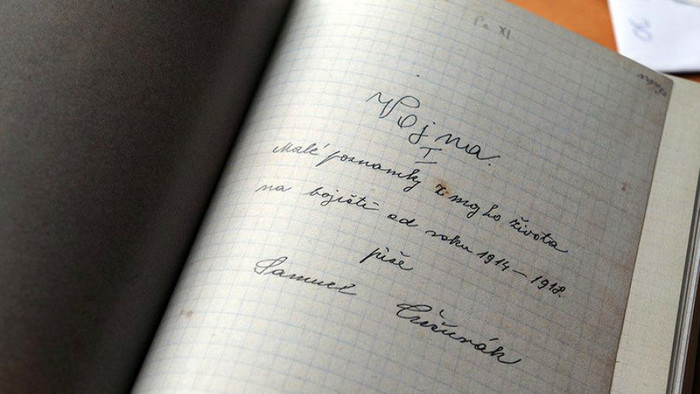 Pa XI
Vojna.
I
Malé poznamky z mojho života
na bojišti od roku 1914 – 1918.
piše
Samuel Čižurák